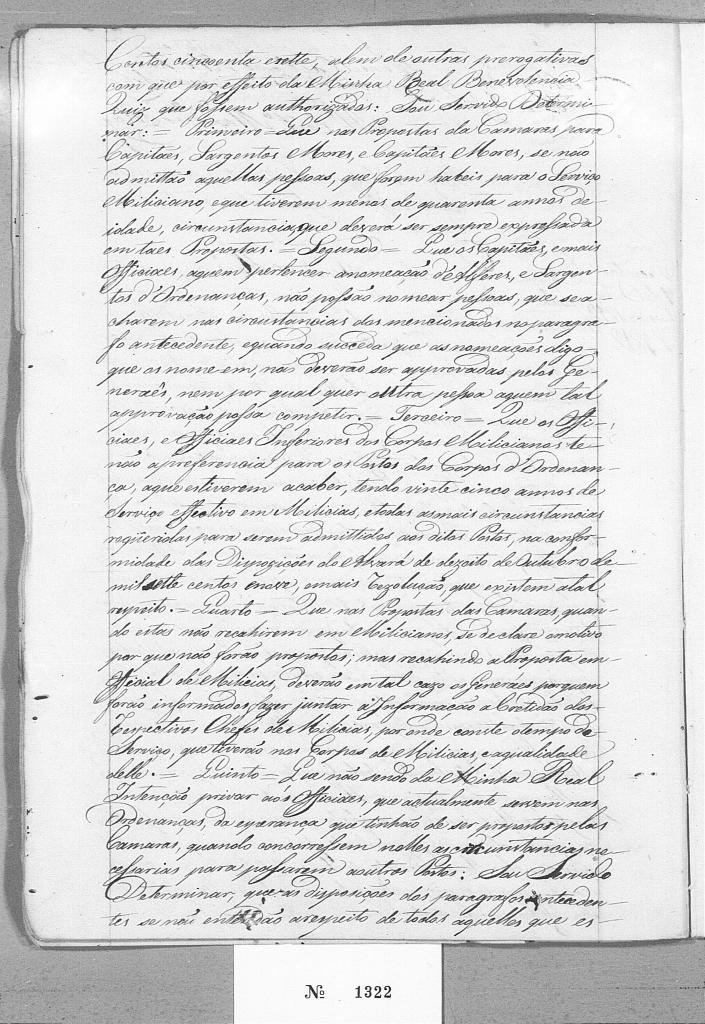 Centos cincoenta esette, alem de outras prerogativas
com que por effeito da Minha Real Benevolencia
Quiz que fossem authorizados: Sou Servido Determi-
nar: = Primeiro = Que nas Propostas da Camaras para
Capitães, Sargentos Mores, e Capitães Mores, se não
admittão aquellas pessoas, que forem habeis para o Serviço
Miliciano, eque tiverem menos de quarenta annos de
idade, circunstancia, que deverá ser sempre expressada
em taes Propostas. = Segundo = Que os Capitães, emais
Officiaes, aquem pertencer anomeação d'Alferes, e Sargen-
tos d'Ordenanças, não possão nomear pessoas, que se a-
charem nas circunstancias dos mencionados no paragra-
fo antecedente, equando succeda que as nomeações digo
que os nome em, não deverão ser approvadas pelos Ge-
neraês, nem por qual quer outra pessoa aquem tal
approvação possa competir. = Terceiro = Que os Offi-
ciaes, e Officiaes Inferiores dos Corpos Milicianos te-
não apreferencia para os Postos dos Corpos d'Ordenan-
ça, aque estiverem acaber, tendo vinte cinco annos de
Serviço effectivo em Milicias, etodas asmais circunstancias
requeridas para serem admittidos aos ditos Postos, na confor-
midade das Dispozições do Alvará de dezoito de Outubro de
mil sette centos enove, emais Rezolução, que existem atal
respeito. = Quarto = Que nas Propostas das Camaras, quan-
do estas não recahirem em Milicianos, se declare omotivo
por que não forão propostos; mas recahindo a Proposta em
Official de Milicias, deverão em tal cazo os Generáes porquem
forão informados, fazer juntar á Informacão a Certidão dos
Respectivos Chefes de Milicias, por onde conste otempo de
Serviço, que tiverão nos Corpos de Milicias, eaqualidade
delle. = Quinto = Que não sendo da Minha Real
Intenção privar aós Officiaes, que actualmente servem nas
Ordenanças, da esperança que tinhão de ser propostos pelas
Camaras, quando concorressem nelles as circunstancias ne-
cessarias para passarem aoutros Postos: Sou Servido
Determinar, que as disposições dos paragrafos anteceden-
tes se não entendão arespeito de todos aquelles que es-
Nº 1322